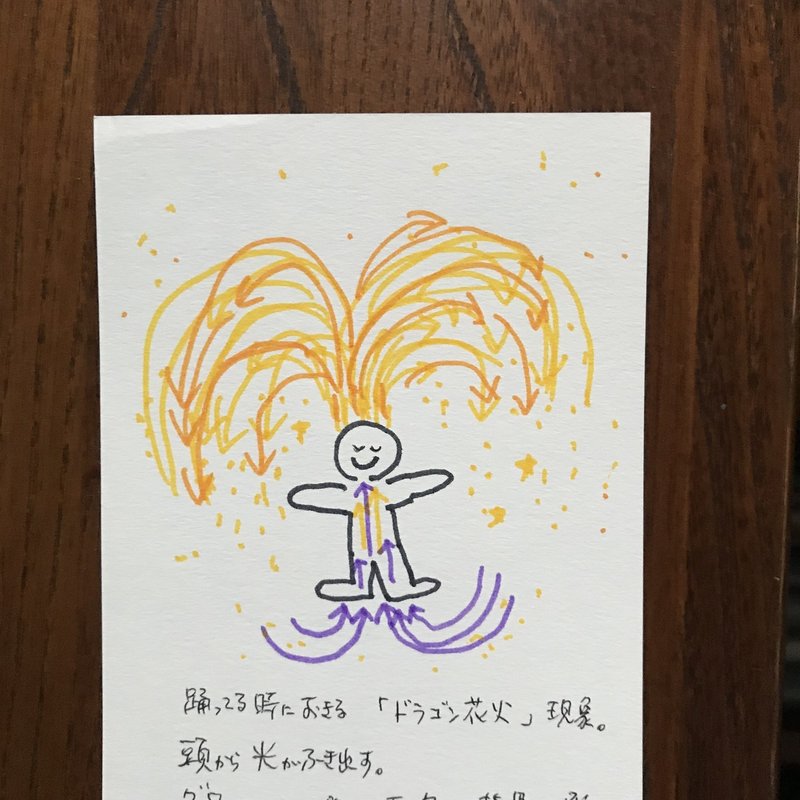 踊ってる時におきる 「ドラゴン花火」現象。
頭から 米がふき出す。